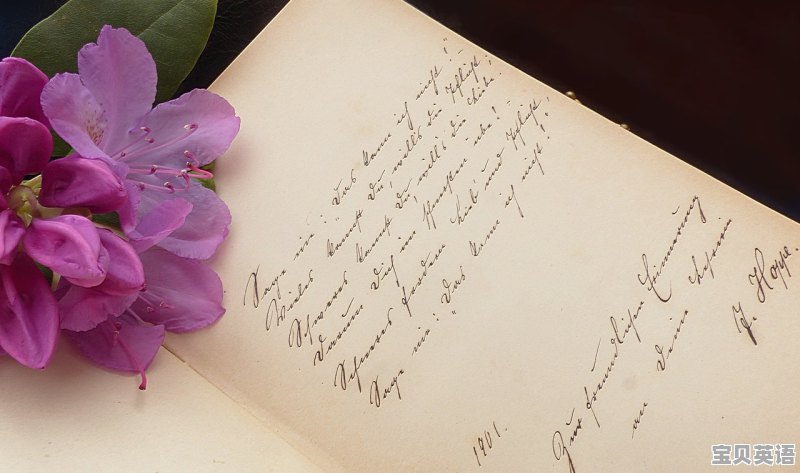 Sage nie: „Das kann ich nicht!“
Vieles kannst Du, will's die Pflicht;
Schweres kannst Du, will's die Liebe.
Darum Dich im Schwersten übe! –
Schweres fordern Lieb' und Pflicht,
Sage nie: „Das kann ich nicht!“
1901.
Zur freundlichen Erinnerung
an Deine Lehrerin
J. Hoppe.
宝贝英语